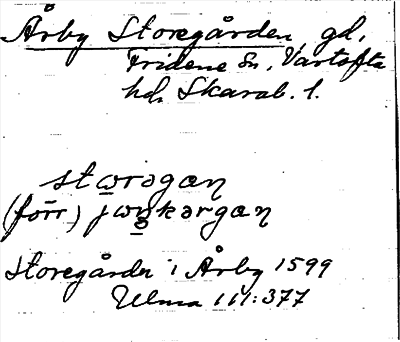 Årby Storegården, gd,
Fridene sn, Vartofta
hd. Skarab. l.
stωrəgαn
(förr) jωŋkərgαn
Storegården i Årby 1599
Ulma 111:377